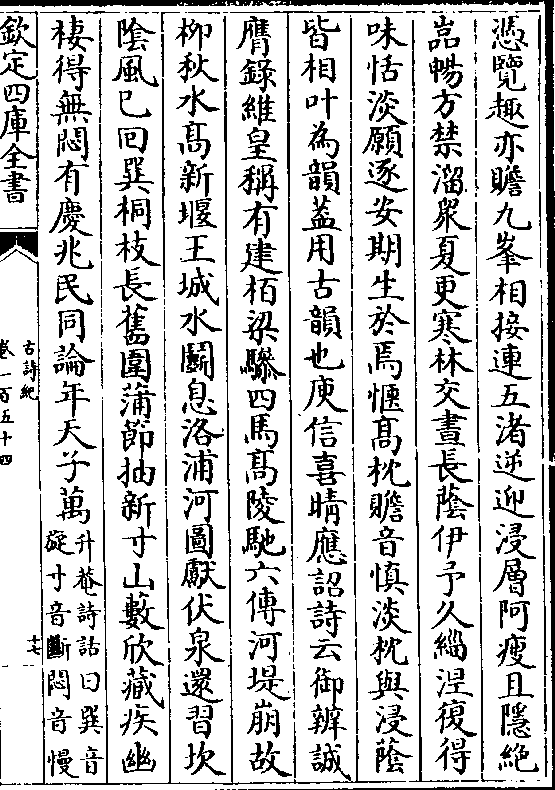 憑覽趣亦贍九峯相接連五渚逆迎浸層阿瘦且隱絶
嵓暢方禁溜眾夏更寒林交晝長蔭伊予久緇湼復得
味恬淡願逐安期生於焉愜髙枕贍音慎淡枕與浸蔭
皆相叶為韻葢用古韻也庾信喜晴應詔詩云御辨誠
膺錄維皇稱有建栢梁驂四馬髙陵馳六傳河堤崩故
柳秋水髙新堰王城水鬭息洛浦河圖獻伏泉還習坎
陰風已回巽桐枝長舊圍蒲節抽新寸山藪欣藏疾幽
棲得無悶有慶兆民同論年天子萬升菴詩話曰巽音
碇寸音斷悶音慢
欽定四庫全書
古詩紀
卷一百五十四
十七